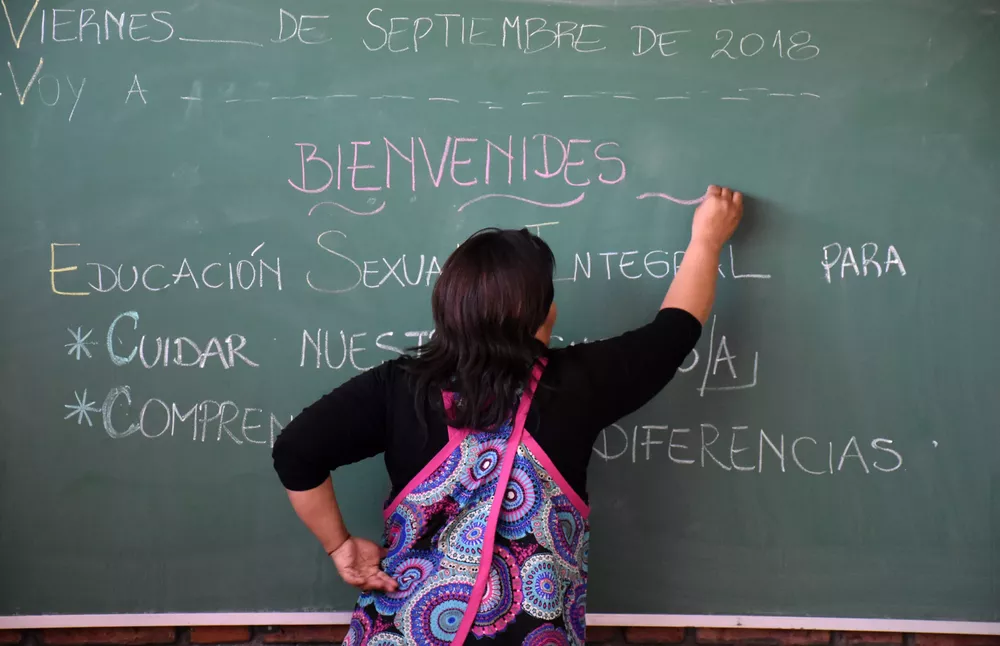 VIERNES__ DE SEPTIEMBRE DE 2018
VOY A _ _ _ _ _ _ _ _ _ _ _ _ _ _
BIENVENIDES
EDUCACIÓN SEXUAL INTEGRAL PARA
* CUIDAR
* DIFERENCIAS